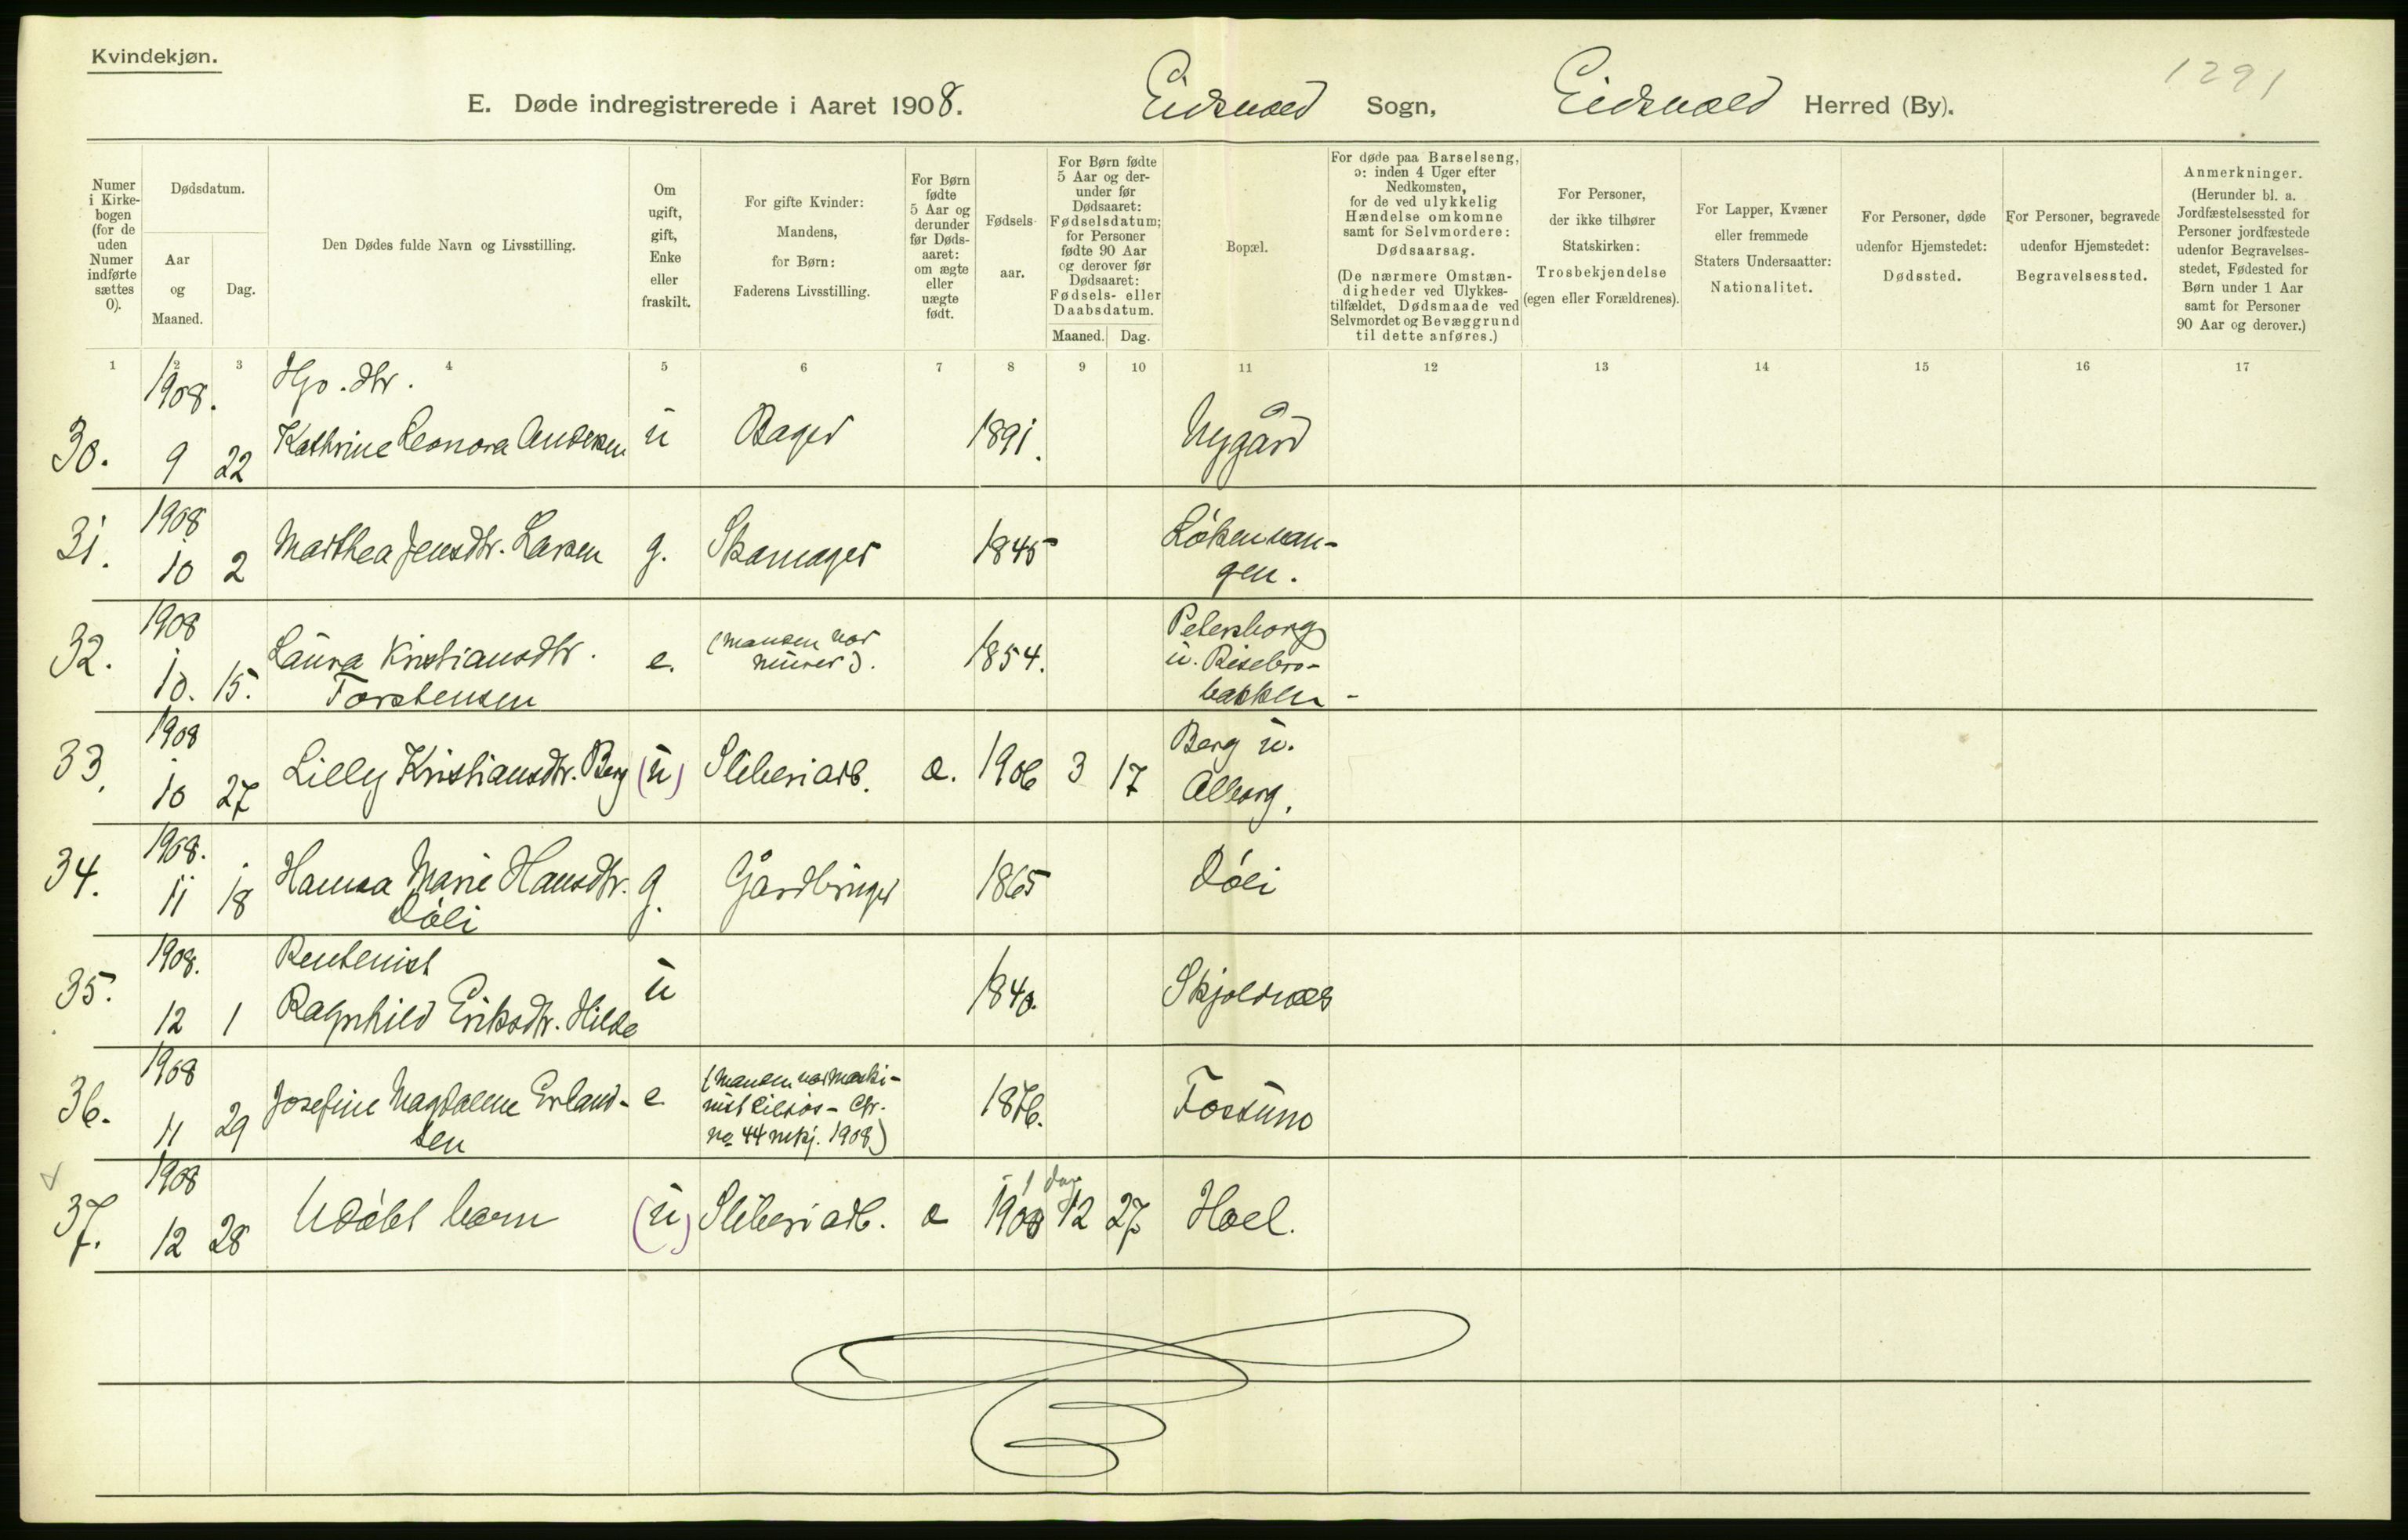 Kvindekjøn.
1291
E. Døde indregistrerede i Aaret 1908. Eidsvold Sogn, Eidsvold Herred (By).
Numer i Kirkebogen (for de uden Numer indførte sættes 0).
Dødsdatum.
Aar og Maaned.
Dag.
Den Dødes fulde Navn og Livsstilling.
Om ugift, gift, Enke eller fraskilt.
For gifte Kvinder: Mandens, for Børn: Faderens Livsstilling.
For Børn fødte 5 Aar og derunder før Dødsaaret: om ægte eller uægte født.
Fødselsaar.
For Børn fødte 5 Aar og derunder før Dødsaaret: Fødselsdatum; for Personer fødte 90 Aar og derover før Dødsaaret: Fødsels- eller Daabsdatum.
Maaned. Dag.
Bopæl.
For døde paa Barselseng, ɔ: inden 4 Uger efter Nedkomsten, for de ved ulykkelig Hændelse omkomne samt for Selvmordere: Dødsaarsag. (De nærmere Omstændigheder ved Ulykkestilfældet, Dødsmaade ved Selvmordet og Bevæggrund til dette anføres.)
For Personer, der ikke tilhører Statskirken: Trosbekjendelse (egen eller Forældrenes).
For Lapper, Kvæner eller fremmede Staters Undersaatter: Nationalitet.
For Personer, døde udenfor Hjemstedet: Dødssted.
For Personer, begravede udenfor Hjemstedet: Begravelsessted.
Anmerkninger. (Herunder bl. a. Jordfæstelsessted for Personer jordfæstede udenfor Begravelsesstedet, Fødested for Børn under 1 Aar samt for Personer 90 Aar og derover.)
1 2 3 4 5 6 7 8 9 10 11 12 13 14 15 16 17
1908. Hjv. dtr.
30. 9 22 Kathrine Leonora Andersen u Bager 1891. Nygård
1908
31. 10 2 Marthea Jensdtr. Larsen g. Skomager 1845 Løkenvan-
gen.
1908 Petersborg
32. 10. 15. Laura Kristiansdtr. e. (Manden var 1854. u. Risebro-
Torstensen murer). bakken -
1908 Berg u.
33. 10 27 Lilly Kristiansdtr. Berg (u) Sliberiarb. æ. 1906 3 17 Alborg.
1908.
34. 11 18 Hanna Marie Hansdtr. g. Gårdbruger 1865 Døli
Døli
1908. Rentenist
35. 12 1 Ragnhild Eriksdtr. Hilde u 1840. Skjoldnæs
1908 (Manden var maski-
36. 11 29 Josefine Magdalene Erland- e nist Cfr. 1876. Fossund
sen no 44 mkj. 1908)
1908 1 dag
37. 12 28 Udøbt barn (u) Sliberiarb. æ 1908 12 27 Hoel.